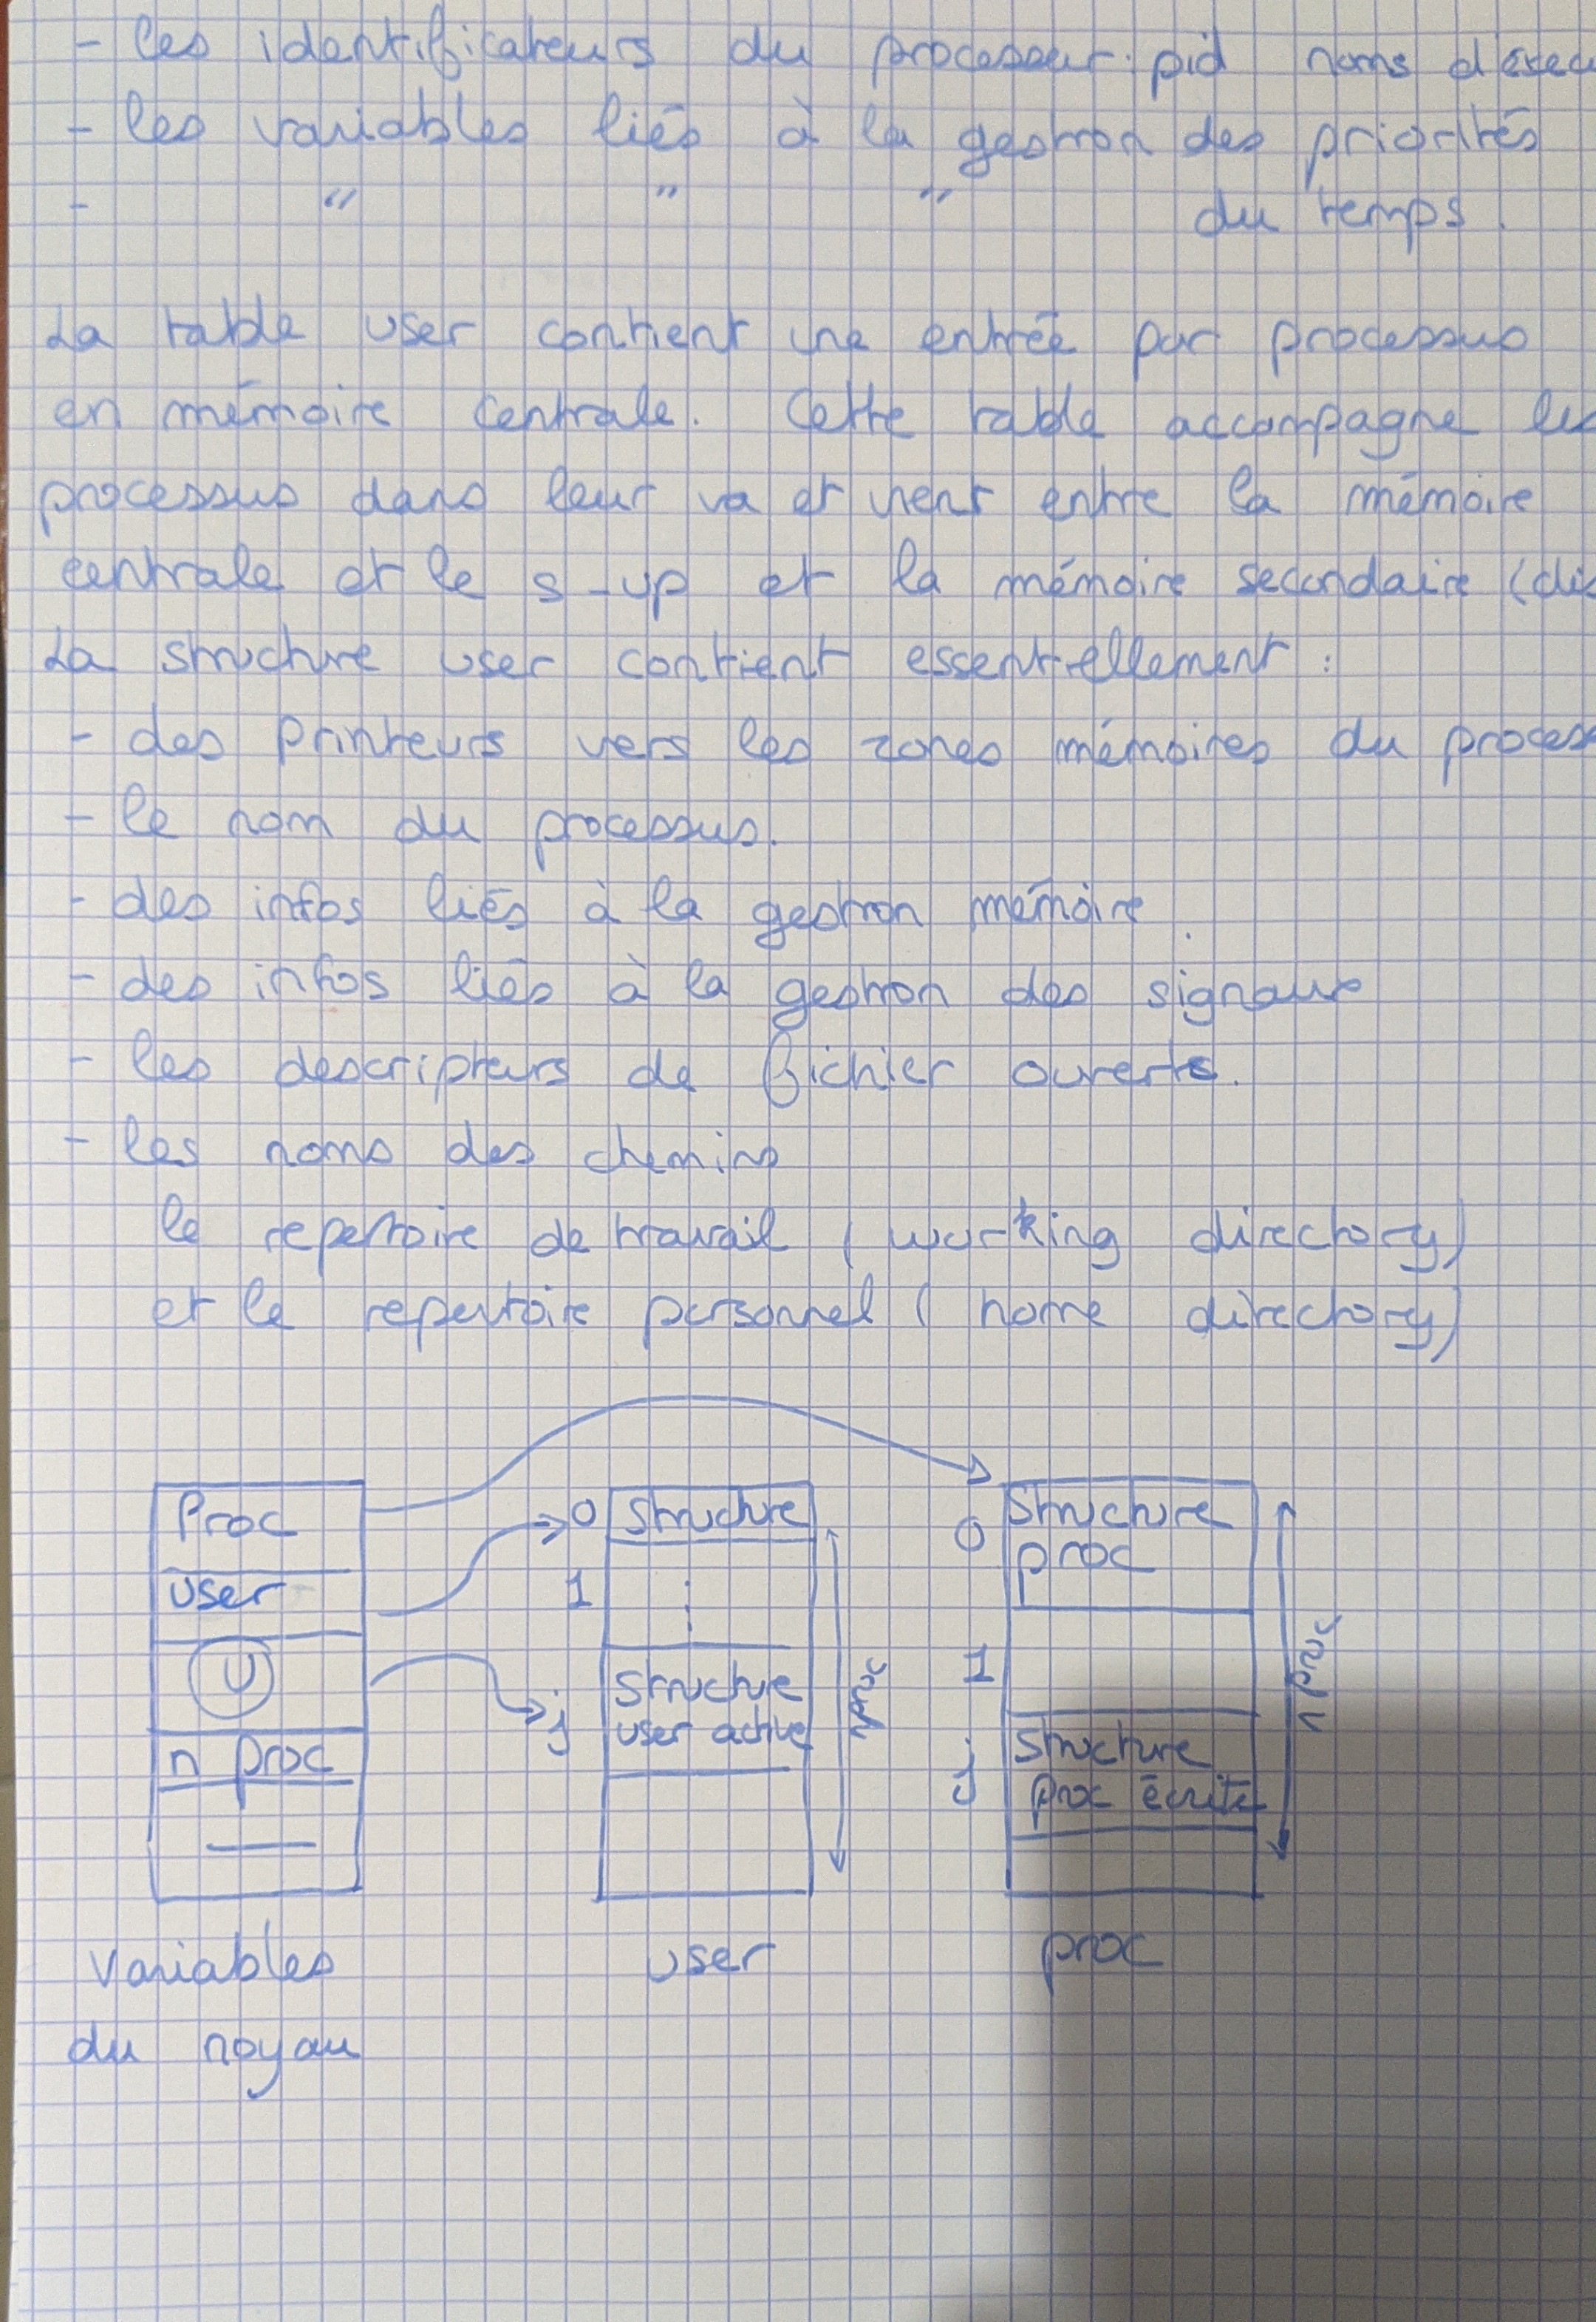 - les identificateurs du processeur : pid noms d'exec
- les variables liés à la gestion des priorités
- " " " du temps.
La table user contient une entrée par processus
en mémoire centrale. Cette table accompagne les
processus dans leur va et vient entre la mémoire
centrale et le s-up et la mémoire secondaire (dis
La structure user contient essentiellement :
- des printeurs vers les zones mémoires du process
- le nom du processus.
- des infos liés à la gestion mémoire.
- des infos liés à la gestion des signaux
- les descripteurs de fichier ouverts.
- les noms des chemins
le repertoire de travail (working directory)
et le repertoire personnel (home directory)
Proc
user
U
n proc
Variables
du noyau
0 Structure
1
j Structure
user active
nproc
user
0 Structure
proc
1
j Structure
proc écrite
n proc
proc